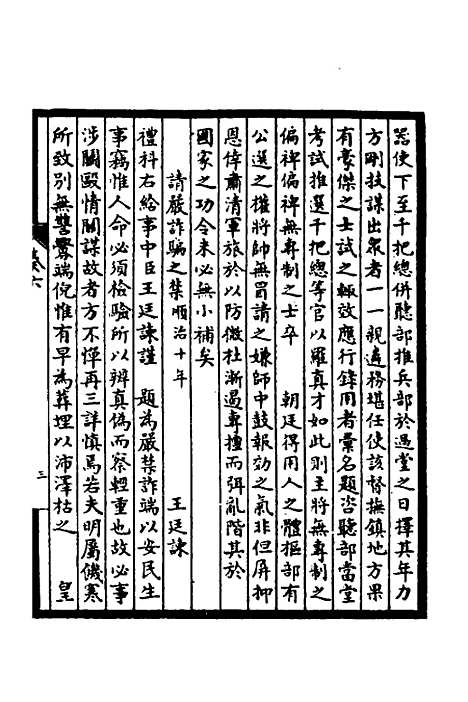 器使下至千把總併聽部推兵部於過堂之日擇其年力
方剛技謀出衆者一一親遴務堪任使該督撫鎮地方果
有豪傑之士試之輒效應行錄用者彙名題咨聽部當堂
考試推選千把總等官以羅真才如此則主將無專制之
偏裨偏裨無專制之士卒 朝廷得用人之體樞部有
公選之權將帥無冒請之嫌師中鼓報効之氣非但屏抑
恩倖肅清軍旅於以防微杜漸遏專擅而弭亂階其於
國家之功令未必無小補矣
請嚴詐騙之禁順治十年 王廷諫
禮科右給事中臣王廷諫謹 題為嚴禁詐端以安民生
事竊惟人命必須檢驗所以辨真偽而察輕重也故必事
涉鬬毆情關謀故者方不憚再三詳慎焉若夫明屬饑寒
所致別無讐釁端倪惟有早為葬埋以沛澤枯之 皇
卷六
三